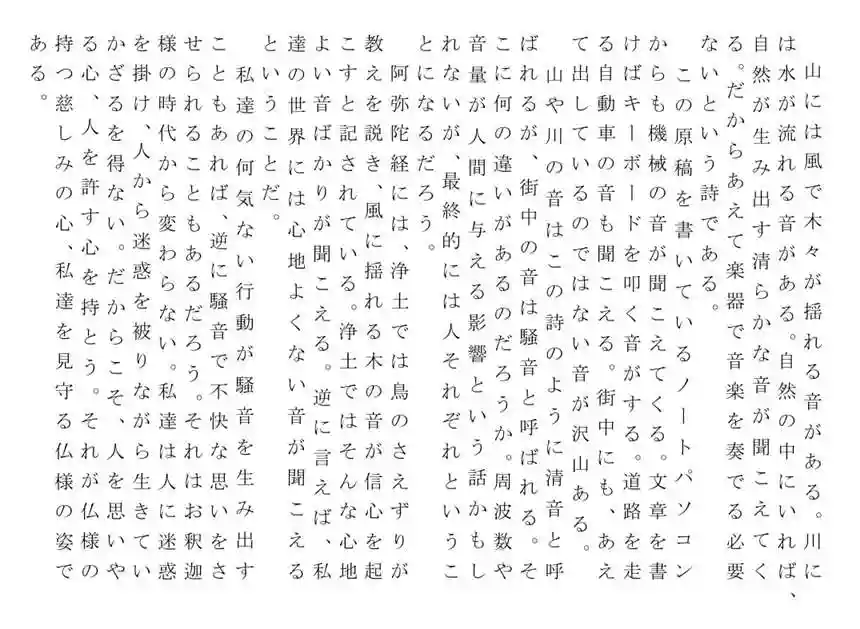 山には風で木々が揺れる音がある。川に
は水が流れる音がある。自然の中にいれば、
自然が生み出す清らかな音が聞こえてく
る。だからあえて楽器で音楽を奏でる必要
ないという詩である。
この原稿を書いているノートパソコン
からも機械の音が聞こえてくる。文章を書
けばキーボードを叩く音がする。道路を走
る自動車の音も聞こえる。街中にも、あえ
て出しているのではない音が沢山ある。
山や川の音はこの詩のように清音と呼
ばれるが、街中の音は騒音と呼ばれる。そ
こに何の違いがあるのだろうか。周波数や
音量が人間に与える影響という話かもし
れないが、最終的には人それぞれというこ
とになるだろう。
阿弥陀経には、浄土では鳥のさえずりが
教えを説き、風に揺れる木の音が信心を起
こすと記されている。浄土ではそんな心地
よい音ばかりが聞こえる。逆に言えば、私
達の世界には心地よくない音が聞こえる
ということだ。
私達の何気ない行動が騒音を生み出す
こともあれば、逆に騒音で不快な思いをさ
せられることもあるだろう。それはお釈迦
様の時代から変わらない。私達は人に迷惑
を掛け、人から迷惑を被りながら生きてい
かざるを得ない。だからこそ、人を思いや
る心、人を許す心を持とう。それが仏様の
持つ慈しみの心、私達を見守る仏様の姿で
ある。